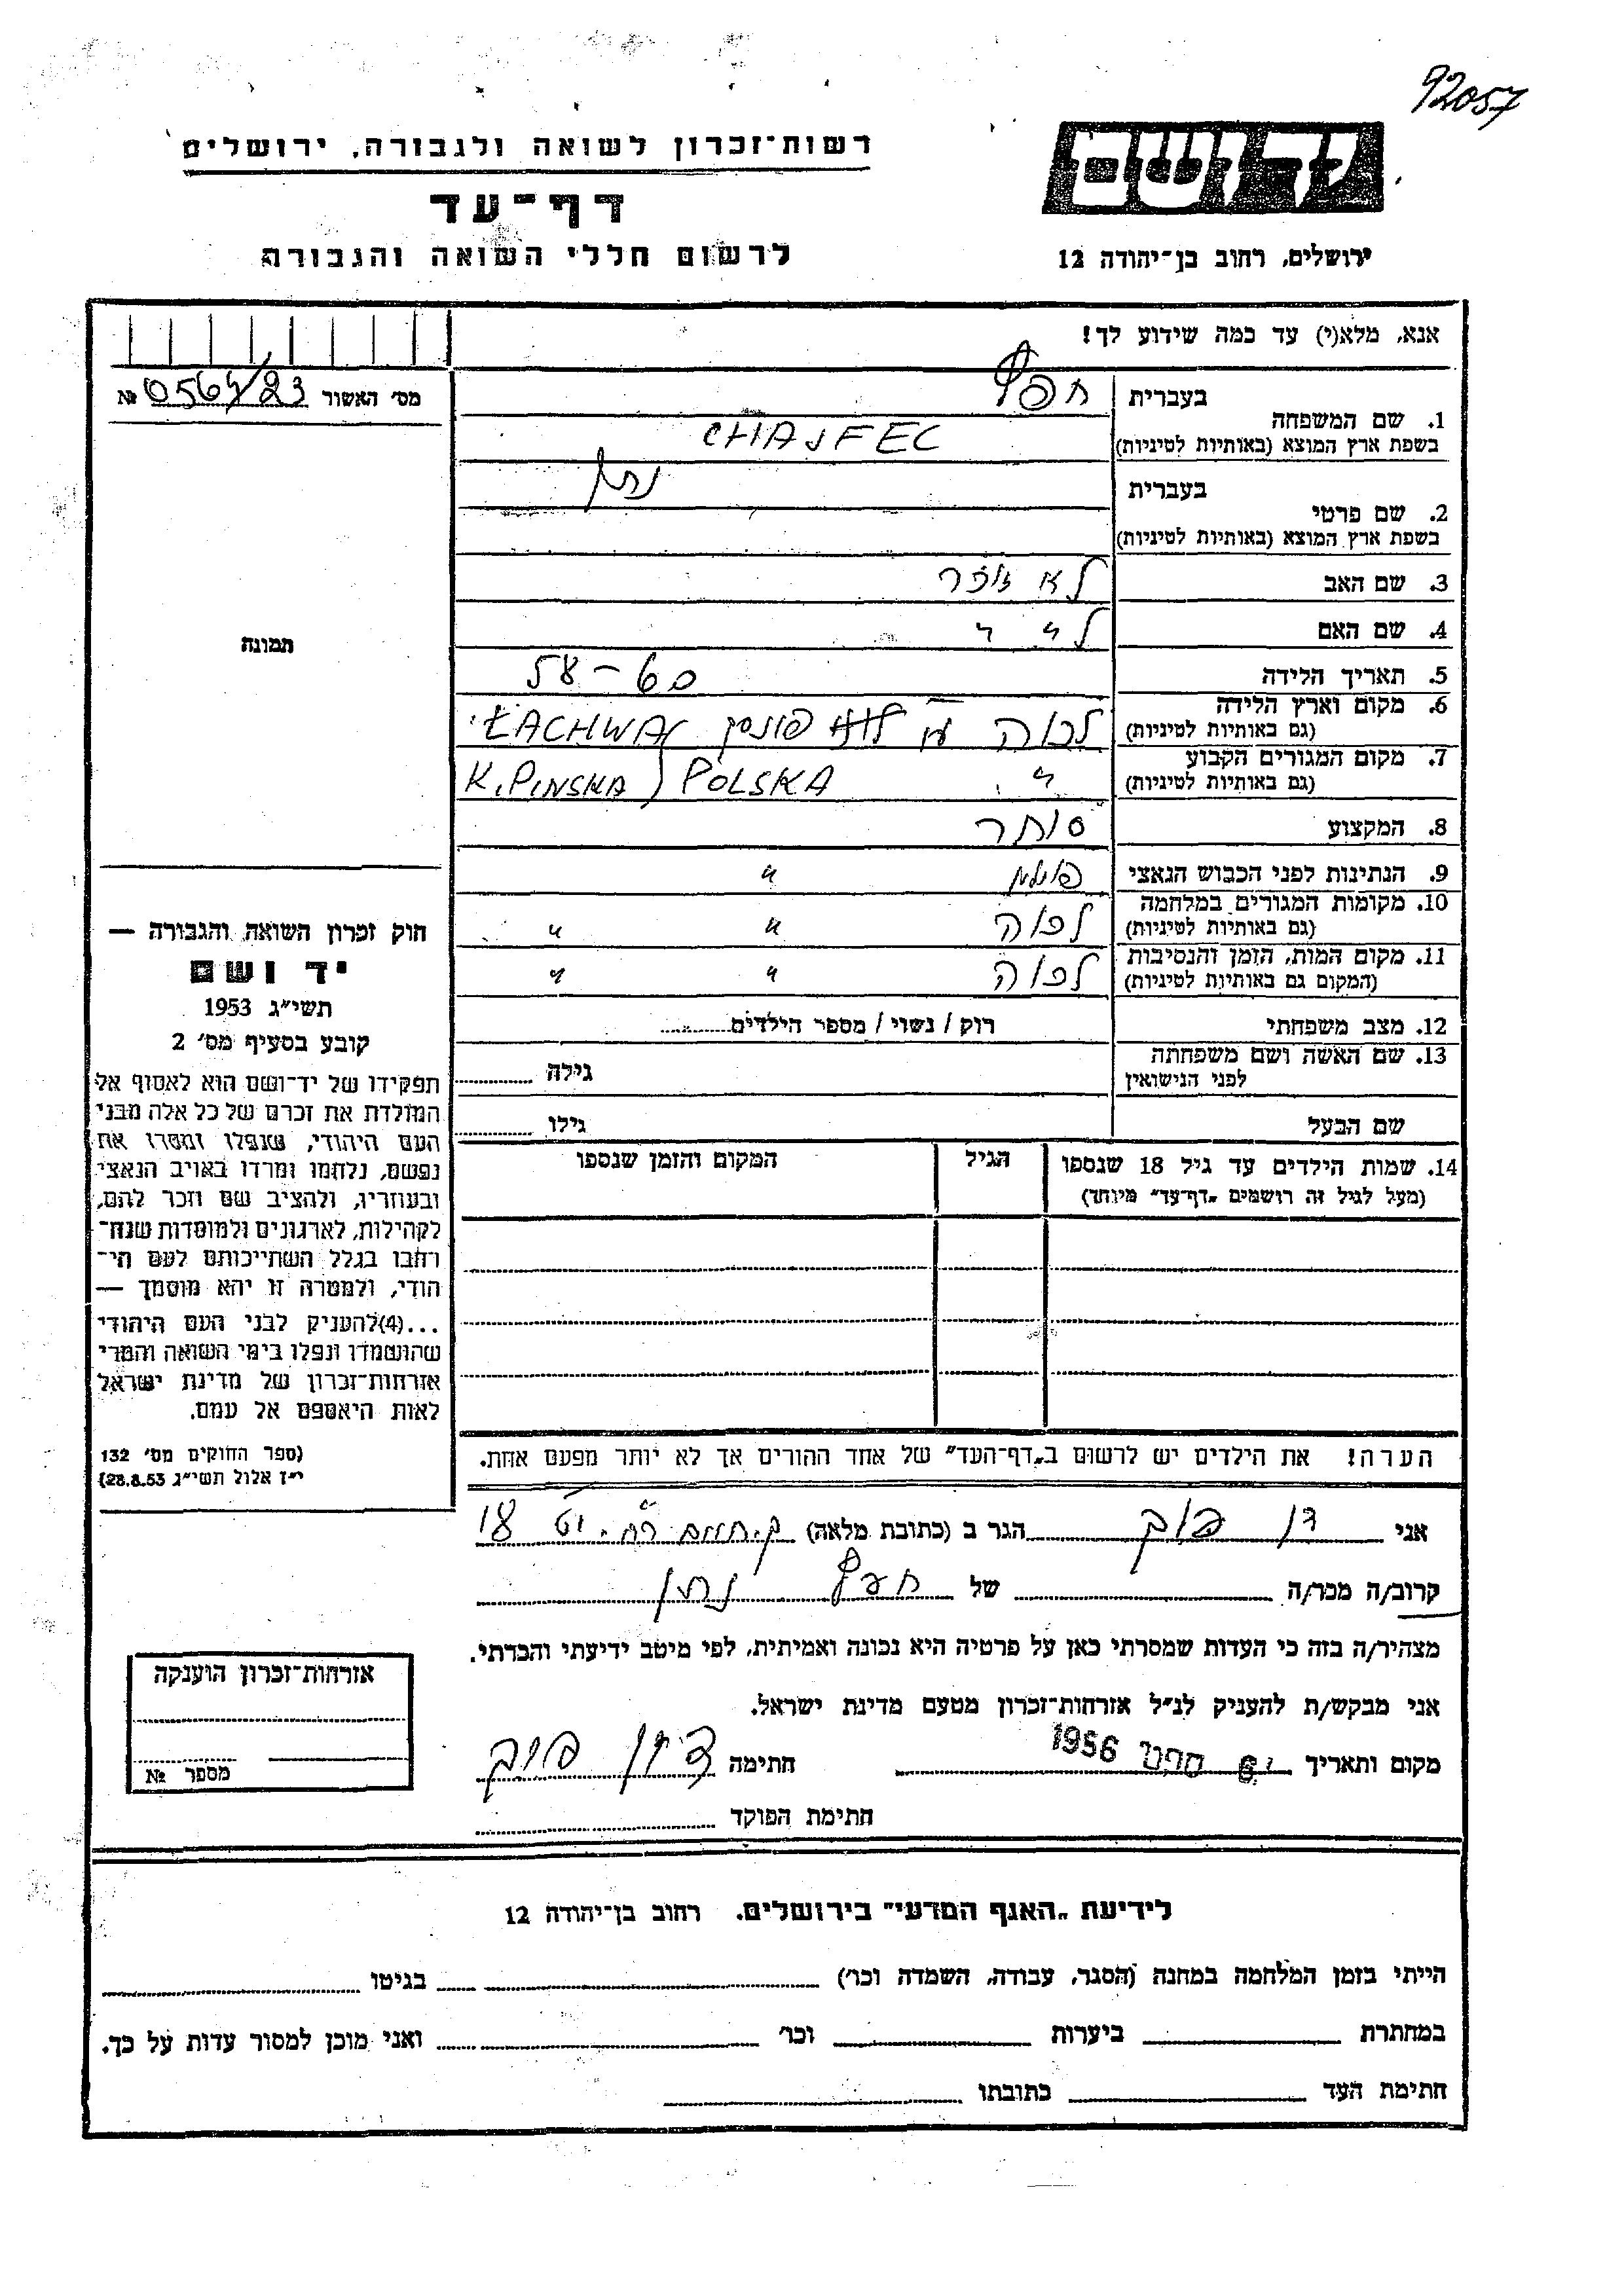 92057
רשות־זכרון לשואה ולגבורה, ירושלים
יד ושם
דף־עד
לרשום חללי השואה והגבורה
ירושלים, רחוב בן־יהודה 12
אנא, מלא(י) עד כמה שידוע לך!
מס׳ האשור №
1. שם המשפחה
בעברית חפץ
בשפת ארץ המוצא (באותיות לטיניות) CHAJFEC
2. שם פרטי
בעברית נתן
בשפת ארץ המוצא (באותיות לטיניות)
3. שם האב לא זוכר
4. שם האם ל״ ״
5. תאריך הלידה 58-60
6. מקום וארץ הלידה
(גם באותיות לטיניות) לכוה ע״י פינסק ŁACHWA
7. מקום המגורים הקבוע
(גם באותיות לטיניות) ״ K. PINSKA) POLSKA
8. המקצוע סוחר
9. הנתינות לפני הכבוש הנאצי ״
10. מקומות המגורים במלחמה
(גם באותיות לטיניות) לכוה ״ ״
11. מקום המות, הזמן והנסיבות
(המקום גם באותיות לטיניות) לכוה ״ ״
12. מצב משפחתי רוק / נשוי / מספר הילדים
13. שם האשה ושם משפחתה
לפני הנישואין גילה
שם הבעל גילו
14. שמות הילדים עד גיל 18 שנספו הגיל המקום והזמן שנספו
(מעל לגיל זה רושמים „דף־עד״ מיוחד)
הערה! את הילדים יש לרשום ב„דף־העד״ של אחד ההורים אך לא יותר מפעם אחת.
תמונה
חוק זכרון השואה והגבורה —
יד ושם
תשי״ג 1953
קובע בסעיף מס׳ 2
תפקידו של יד־ושם הוא לאסוף אל
המולדת את זכרם של כל אלה מבני
העם היהודי, שנפלו ומסרו את
נפשם, נלחמו ומרדו באויב הנאצי
ובעוזריו, ולהציב שם וזכר להם,
לקהילות, לארגונים ולמוסדות שנח־
רבו בגלל השתייכותם לעם הי־
הודי, ולמטרה זו יהא מוסמך —
...(4)להעניק לבני העם היהודי
שהושמדו ונפלו בימי השואה והמרי
אזרחות־זכרון של מדינת ישראל
לאות היאספם אל עמם.
(ספר החוקים מס׳ 132
י״ז אלול תשי״ג 28.8.53)
אני דן פוק הגר ב (כתובת מלאה)
קרוב/ה מכר/ה של חפץ נתן
מצהיר/ה בזה כי העדות שמסרתי כאן על פרטיה היא נכונה ואמיתית, לפי מיטב ידיעתי והכרתי.
אני מבקש/ת להעניק לנ״ל אזרחות־זכרון מטעם מדינת ישראל.
מקום ותאריך 1956 חתימה
חתימת הפוקד
אזרחות־זכרון הוענקה
מספר №
לידיעת „האגף המדעי״ בירושלים, רחוב בן־יהודה 12
הייתי בזמן המלחמה במחנה (הסגר, עבודה, השמדה וכו׳) בגיטו
במחתרת ביערות וכו׳ ואני מוכן למסור עדות על כך.
חתימת העד כתובתו